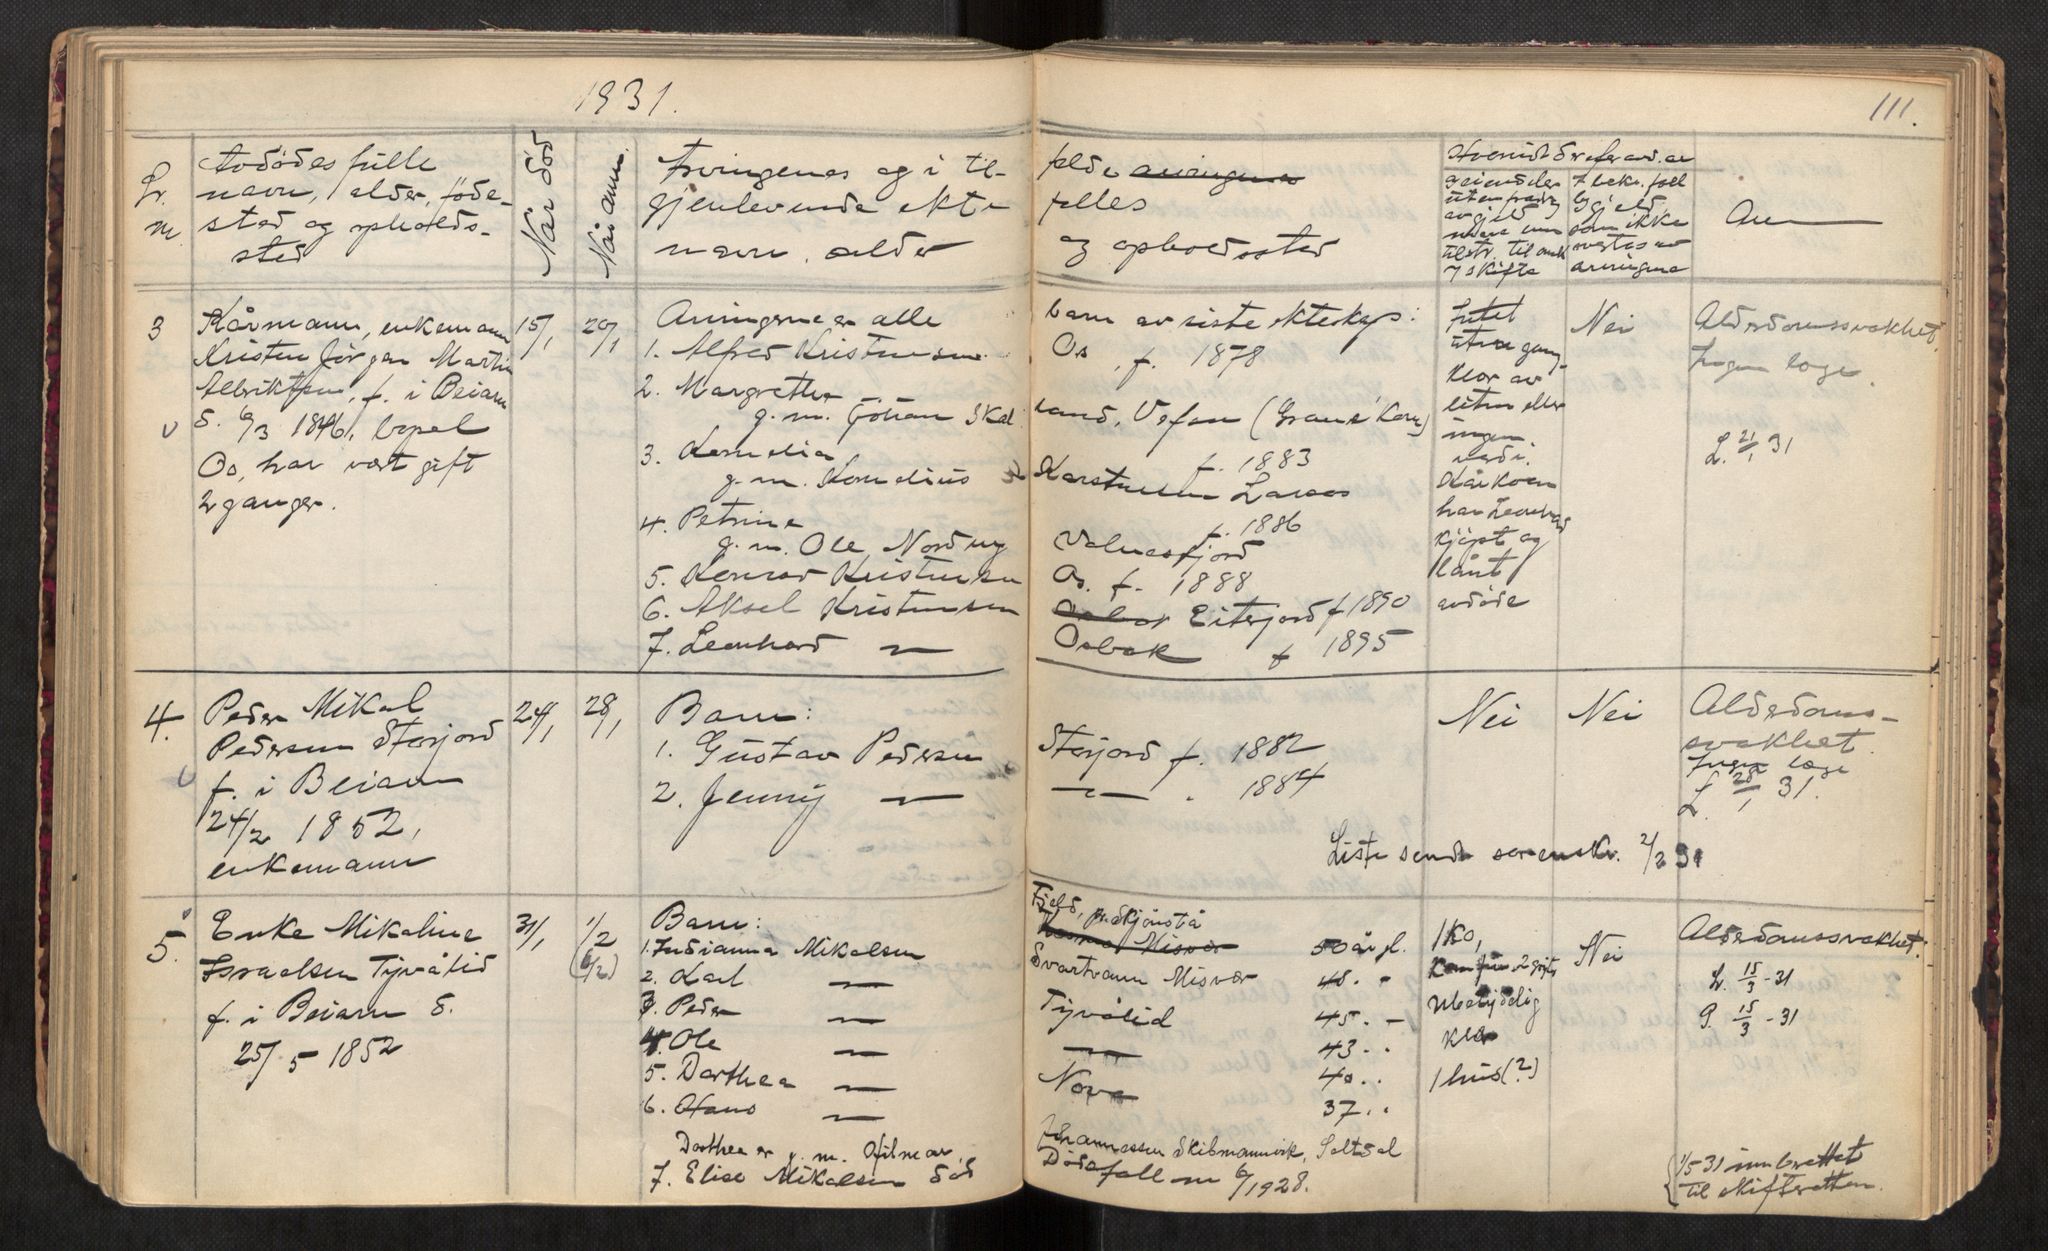 1931.
111.
Nr.
Avdødes fulle
navn, alder, føde-
sted og opholds-
sted
Når død
Når anm.
Arvingenes og i til-
gjenlevende ekte
navn, alder
felde arvingenes
felles
og opholdssted
av gjeld
til skifte
som ikke
arvingene
An
3
Kårmann, enkemann
Kristen Jørgen Martin
Albriktsen, f. i Beiarn
d. 6/3 1846, bopel
Os, har vært gift
2 ganger.
15/1
20/1
Arvingerne er alle
1. Alfred Kristensen
2. Margrethe
g.m. Johan Skal
3. Kornelia
g.m. Kornelius
4. Petrine
g.m. Ole Nordnug
5. Konrad Kristensen
6. Aksel Kristensen
7. Leonhard —
barn av siste ekteskap:
Os, f. 1878
land, Vefsn (Grane kom)
f. 1883
Karstensen Larsos
f. 1886
Valnesfjord
Os. f. 1888
Osbak Eiterjord f 1890
Osbak f 1895
Intet
uten gang-
klær av
liten eller
ingen
verdi.
Kårkoen
har Leonhard
kjøpt og
lånt
avdøde
Nei
Alderdomssvakhet.
Ingen læge.
L. 21/1 31
4.
Peder Mikal
Pedersen Storjord
f. i Beiarn
24/2 1852,
enkemann
24/1
28/1
Barn:
1. Gustav Pedersen
2. Jenny —
Storjord f. 1882
— " 1884
Nei
Nei
Alderdoms-
svakhet.
Ingen læge
L. 28/1 31.
Liste sendt sorenskr. 2/2 31
5.
Enke Mikaline
Israelsen Tyvålid
f. i Beiarn d.
25/5 1852
31/1
1/2
(6/2)
Barn:
1. Indianna Mikalsen
2. Karl —
3. Peder —
4. Ole —
5. Dorthea —
6. Hans —
Dorthea er g.m. Hilmar
7. Elise Mikalsen død
Fjeld, pr. Skjønstå
Misvær 50 år gl.
Svartvann Misvær 48 . "
Tyvålid 45 . "
— 43 . "
Nova 40 . .
37 . .
Johannessen Skibmannvik, Saltdal
Dødsfall nr 6/1928.
1 ko,
ubetydelig
klær
1 hus (?)
Nei
Alderdomssvakhet.
L. 15/3 - 31
P. 15/3 - 31
1/5 31 innberettet
til skifteretten.